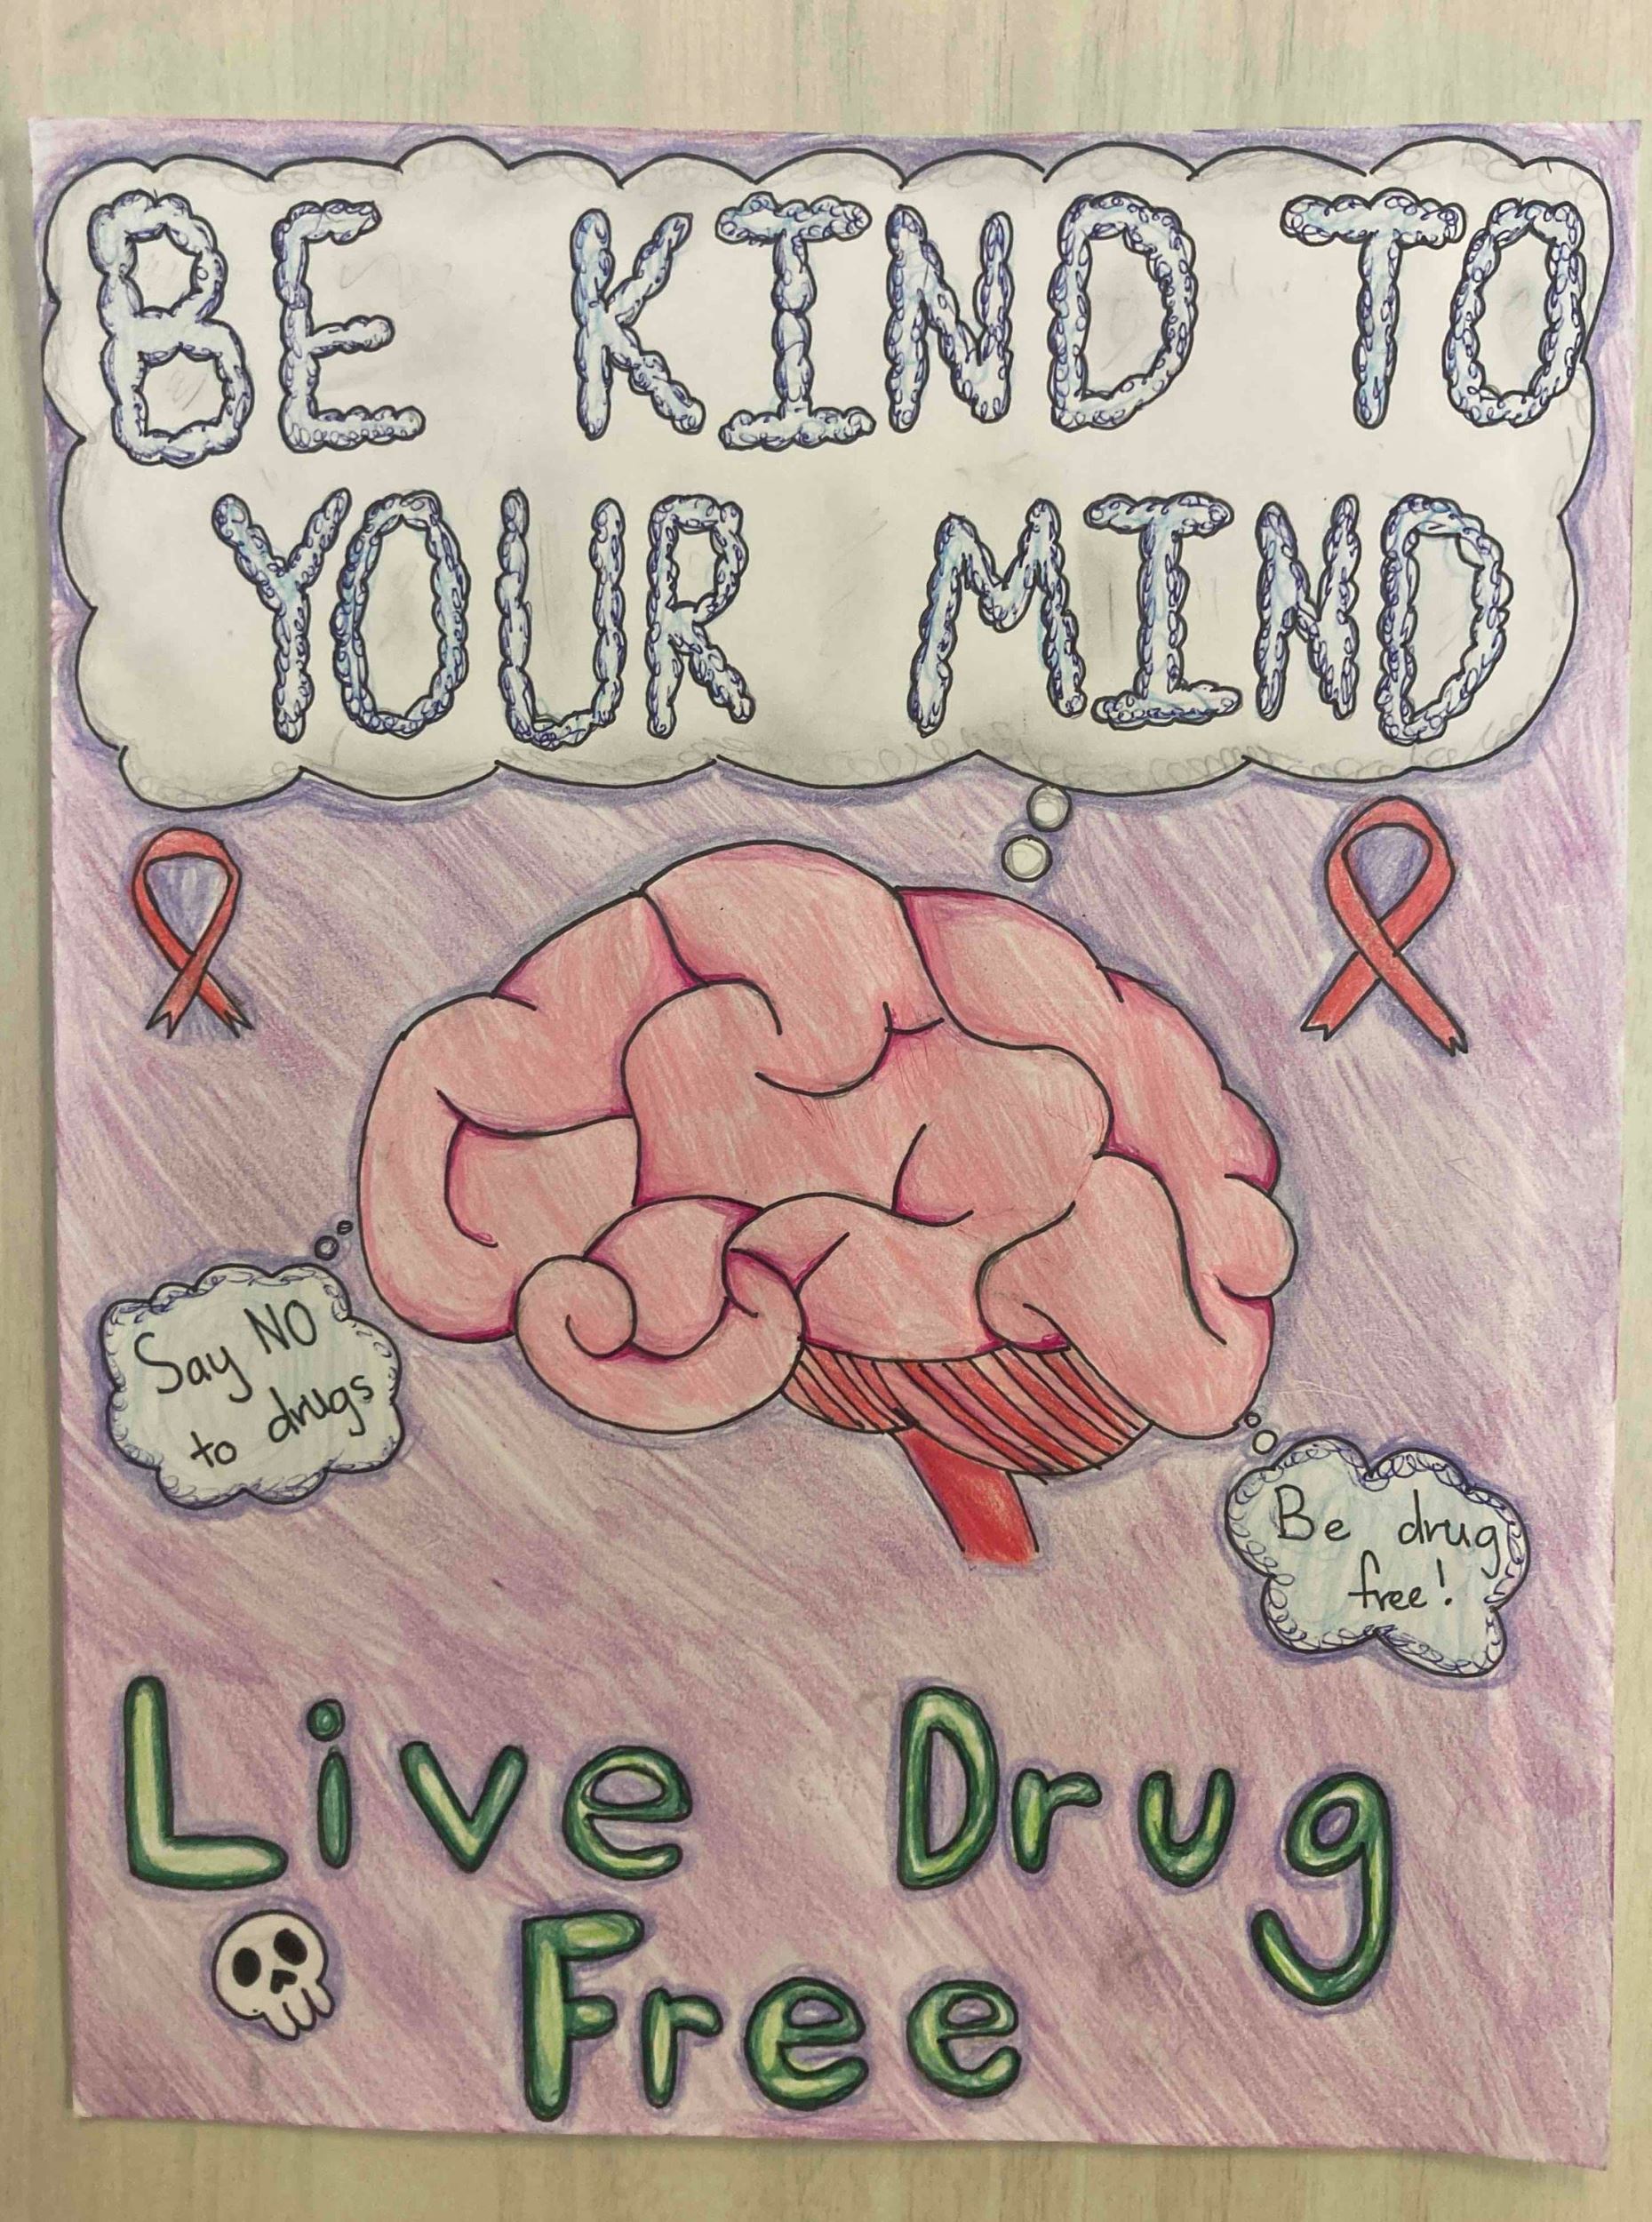 BE KIND TO
YOUR MIND
Say NO
to drugs
Be drug
free!
Live Drug
Free